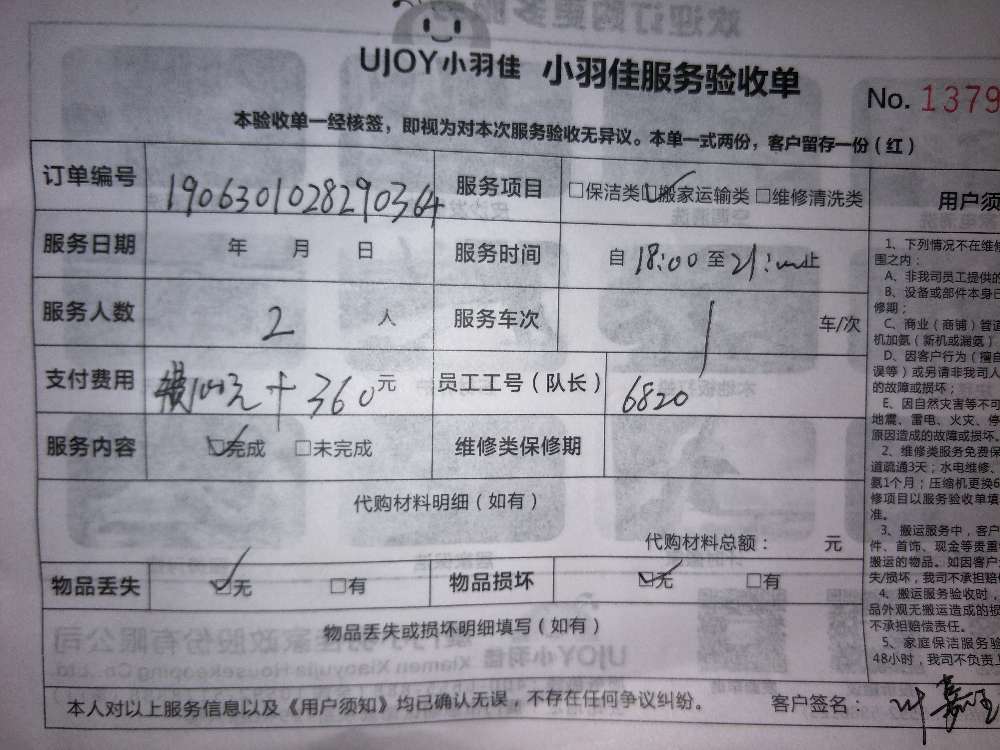 欢迎订购更多服
UJOY小羽佳 小羽佳服务验收单
No. 1379
本验收单一经核签，即视为对本次服务验收无异议。本单一式两份，客户留存一份（红）
订单编号 1906301028290364 服务项目 □保洁类 ☑搬家运输类 □维修清洗类
服务日期 年 月 日 服务时间 自 18:00 至 21: 止
服务人数 2 人 服务车次 1 车/次
支付费用 100元 + 360 元 员工工号（队长） 6820
服务内容 ☑完成 □未完成 维修类保修期
代购材料明细（如有）
代购材料总额： 元
物品丢失 ☑无 □有 物品损坏 ☑无 □有
物品丢失或损坏明细填写（如有）
本人对以上服务信息以及《用户须知》均已确认无误，不存在任何争议纠纷。 客户签名： 叶嘉
用户须
1、下列情况不在维修
围之内：
A、非我司员工提供的
B、设备或部件本身已
修期；
C、商业（商铺）管道
机加氨（新机或漏氨）
D、因客户行为（擅自
误等）或另请非我司人
的故障或损坏；
E、因自然灾害等不可
地震、雷电、火灾、停
原因造成的故障或损坏。
2、维修类服务免费保
道疏通3天；水电维修、
氨1个月；压缩机更换6
修项目以服务验收单填
准。
3、搬运服务中，客户
件、首饰、现金等贵重
搬运的物品。如因客户
失/损坏，我司不承担赔
4、搬运服务验收时，
品外观无搬运造成的损
不承担赔偿责任。
5、家庭保洁服务验
48小时，我司不负责
家政股份有限公司
UJOY小羽佳
Xiamen Xiaoyujia Housekeeping Co., Ltd